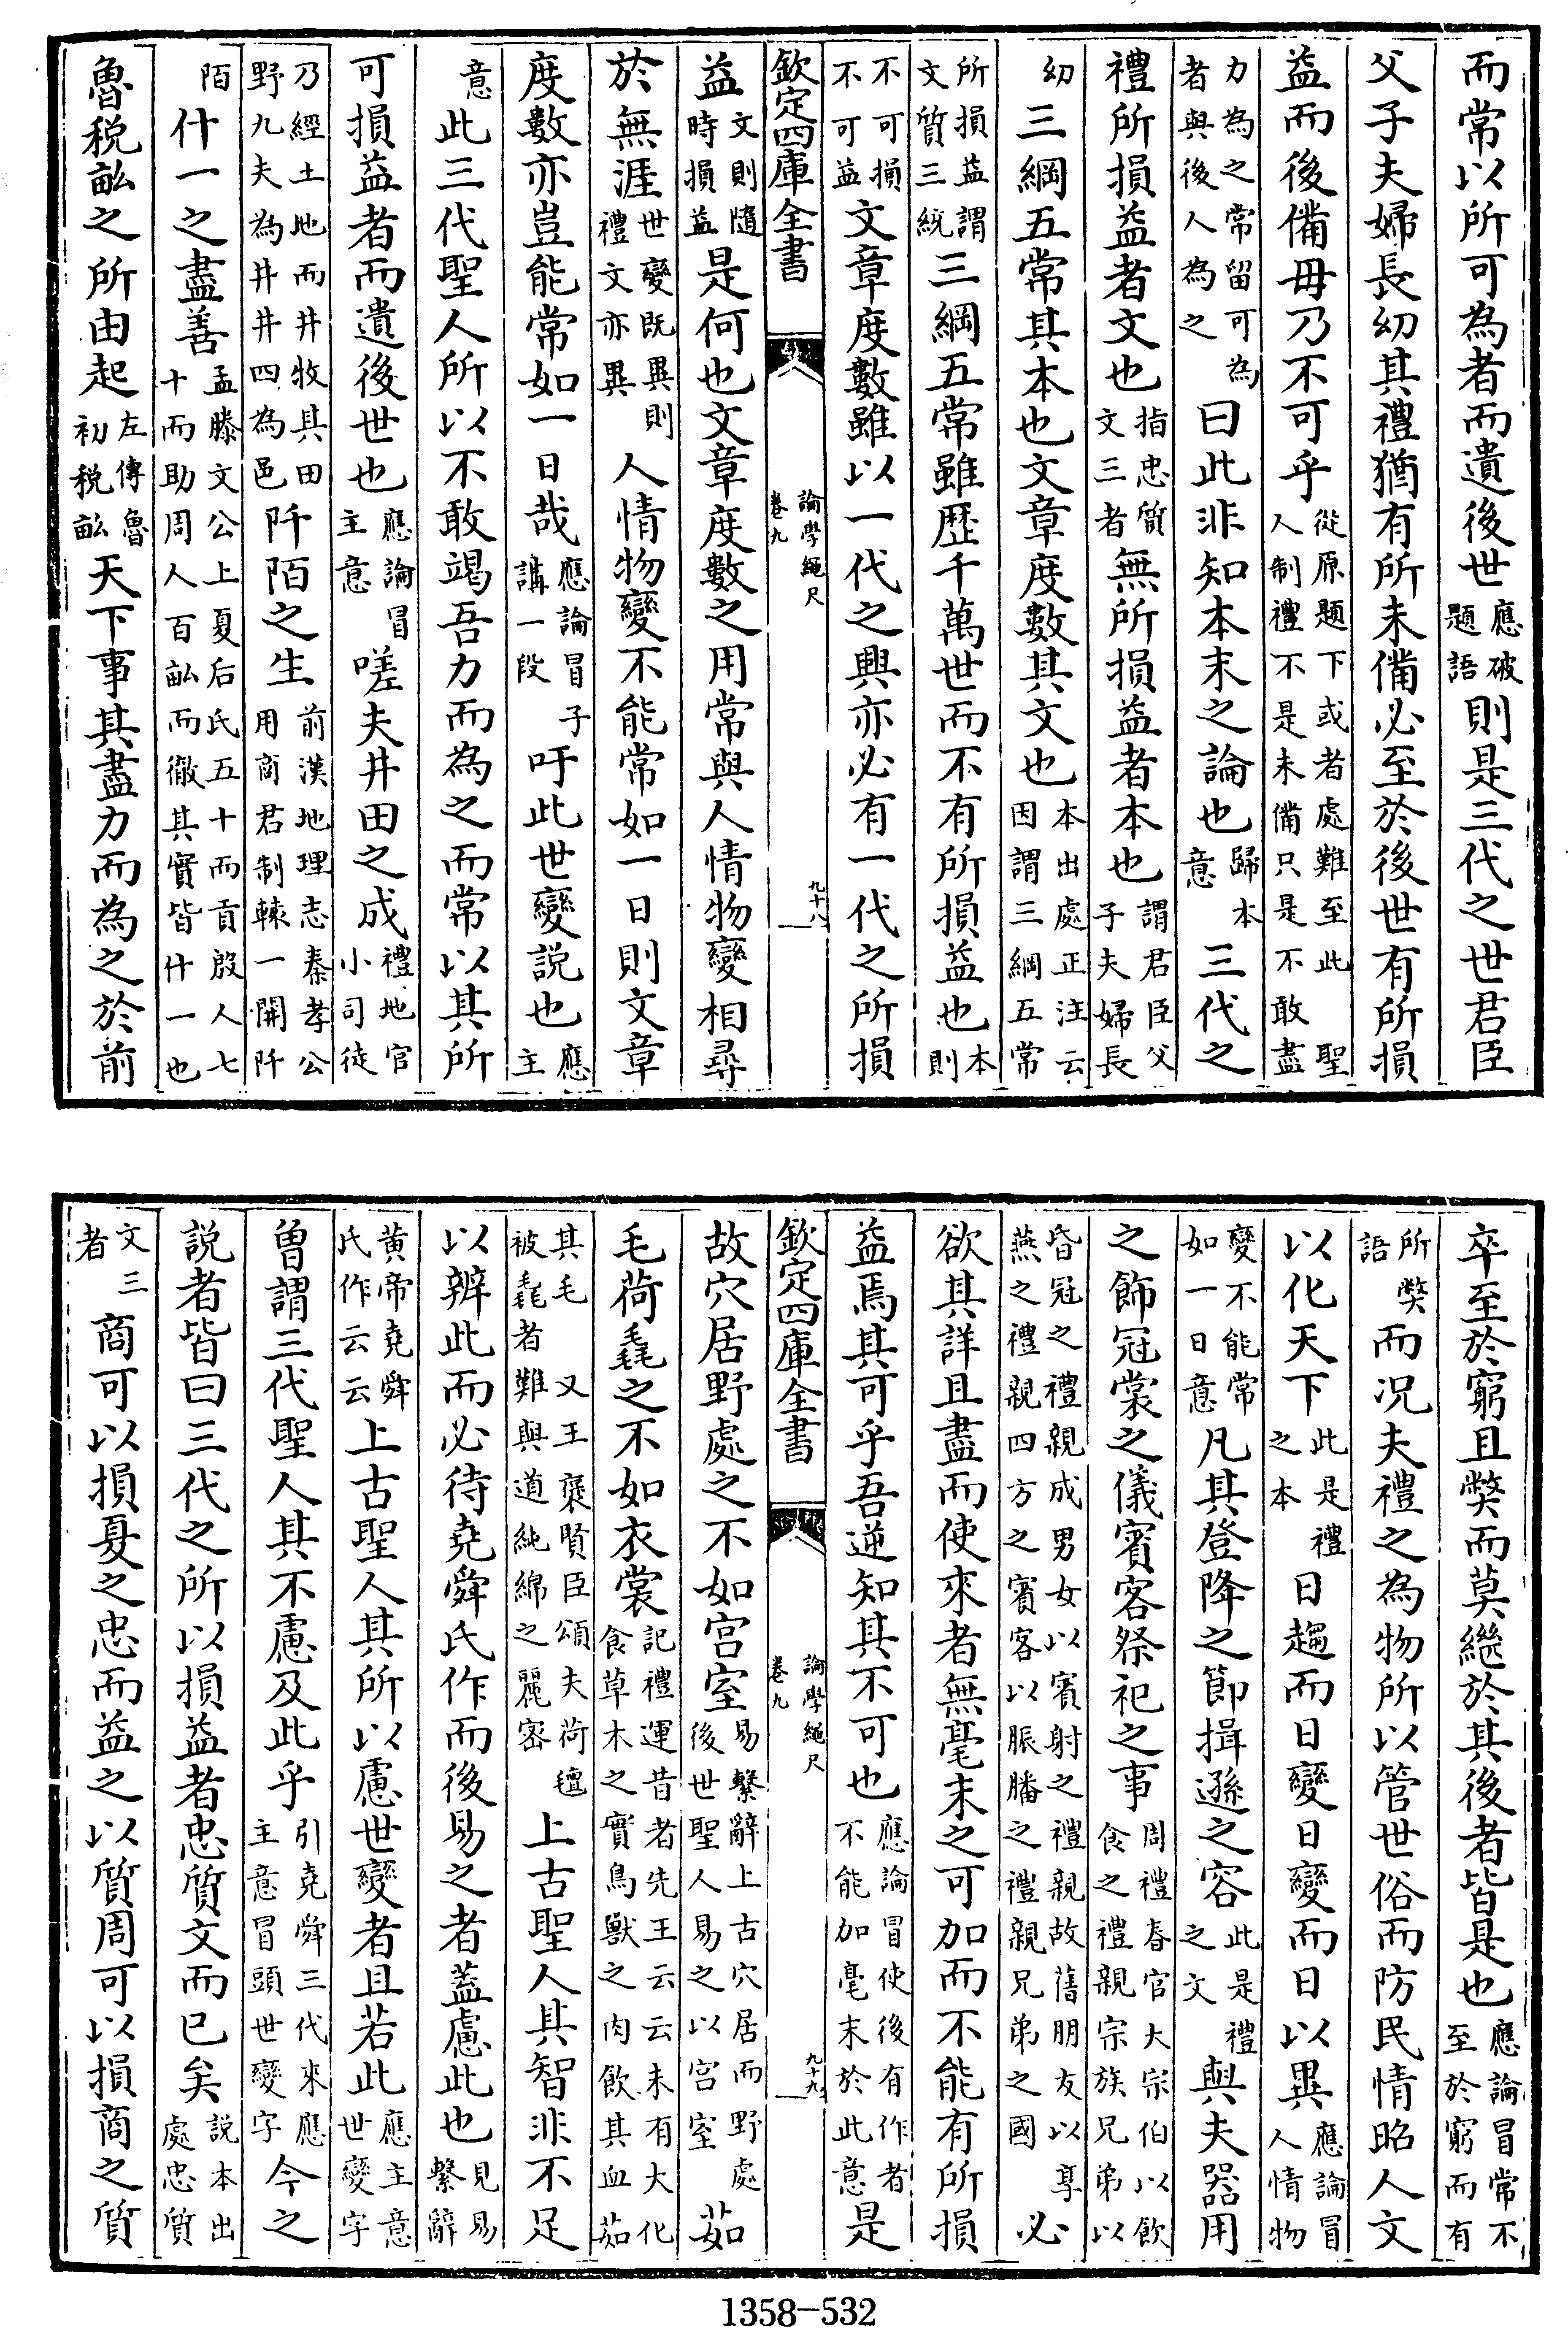 而常以所可為者而遺後世應破題語則是三代之世君臣
父子夫婦長幼其禮猶有所未備必至於後世有所損
益而後備毋乃不可乎從原題下或者處難至此聖人制禮不是未備只是不敢盡
力為之常留可為者與後人為之曰此非知本末之論也歸本意三代之
禮所損益者文也指忠質文三者無所損益者本也謂君臣父子夫婦長
幼三綱五常其本也文章度數其文也本出處正注云因謂三綱五常
所損益謂文質三統三綱五常雖歷千萬世而不有所損益也本則
不可損不可益文章度數雖以一代之興亦必有一代之所損
欽定四庫全書
論學繩尺
卷九
九十八
益文則隨時損益是何也文章度數之用常與人情物變相尋
於無涯世變既異則禮文亦異人情物變不能常如一日則文章
度數亦豈能常如一日哉應論冒子講一段吁此世變説也應主
意此三代聖人所以不敢竭吾力而為之而常以其所
可損益者而遺後世也應論冒主意嗟夫井田之成禮地官小司徒
乃經土地而井牧其田野九夫為井井四為邑阡陌之生前漢地理志秦孝公用商君制轅一開阡
陌什一之盡善孟滕文公上夏后氏五十而貢殷人七十而助周人百畝而徹其實皆什一也
魯税畝之所由起左傳魯初税畝天下事其盡力而為之於前
卒至於窮且獘而莫繼於其後者皆是也應論冒常不至於窮而有
所獘語而况夫禮之為物所以管世俗而防民情昭人文
以化天下此是禮之本日趨而日變日變而日以異應論冒人情物
變不能常如一日意凡其登降之節揖遜之容此是禮之文與夫器用
之飾冠裳之儀賓客祭祀之事周禮春官大宗伯以飲食之禮親宗族兄弟以
昏冠之禮親成男女以賓射之禮親故舊朋友以享燕之禮親四方之賓客以脤膰之禮親兄弟之國必
欲其詳且盡而使來者無毫末之可加而不能有所損
益焉其可乎吾逆知其不可也應論冒使後有作者不能加毫末於此意是
欽定四庫全書
論學繩尺
卷九
九十九
故穴居野處之不如宫室易繫辭上古穴居而野處後世聖人易之以宫室茹
毛荷毳之不如衣裳記禮運昔者先王云云未有火化食草木之實鳥獸之肉飲其血茹
其毛又王襃賢臣頌夫荷氊被毳者難與道純綿之麗密上古聖人其智非不足
以辨此而必待堯舜氏作而後易之者蓋慮此也見易繫辭
黄帝堯舜氏作云云上古聖人其所以慮世變者且若此應主意世變字
曾謂三代聖人其不慮及此乎引堯舜三代來應主意冒頭世變字今之
説者皆曰三代之所以損益者忠質文而已矣説本出處忠質
文三者商可以損夏之忠而益之以質周可以損商之質
1358-532